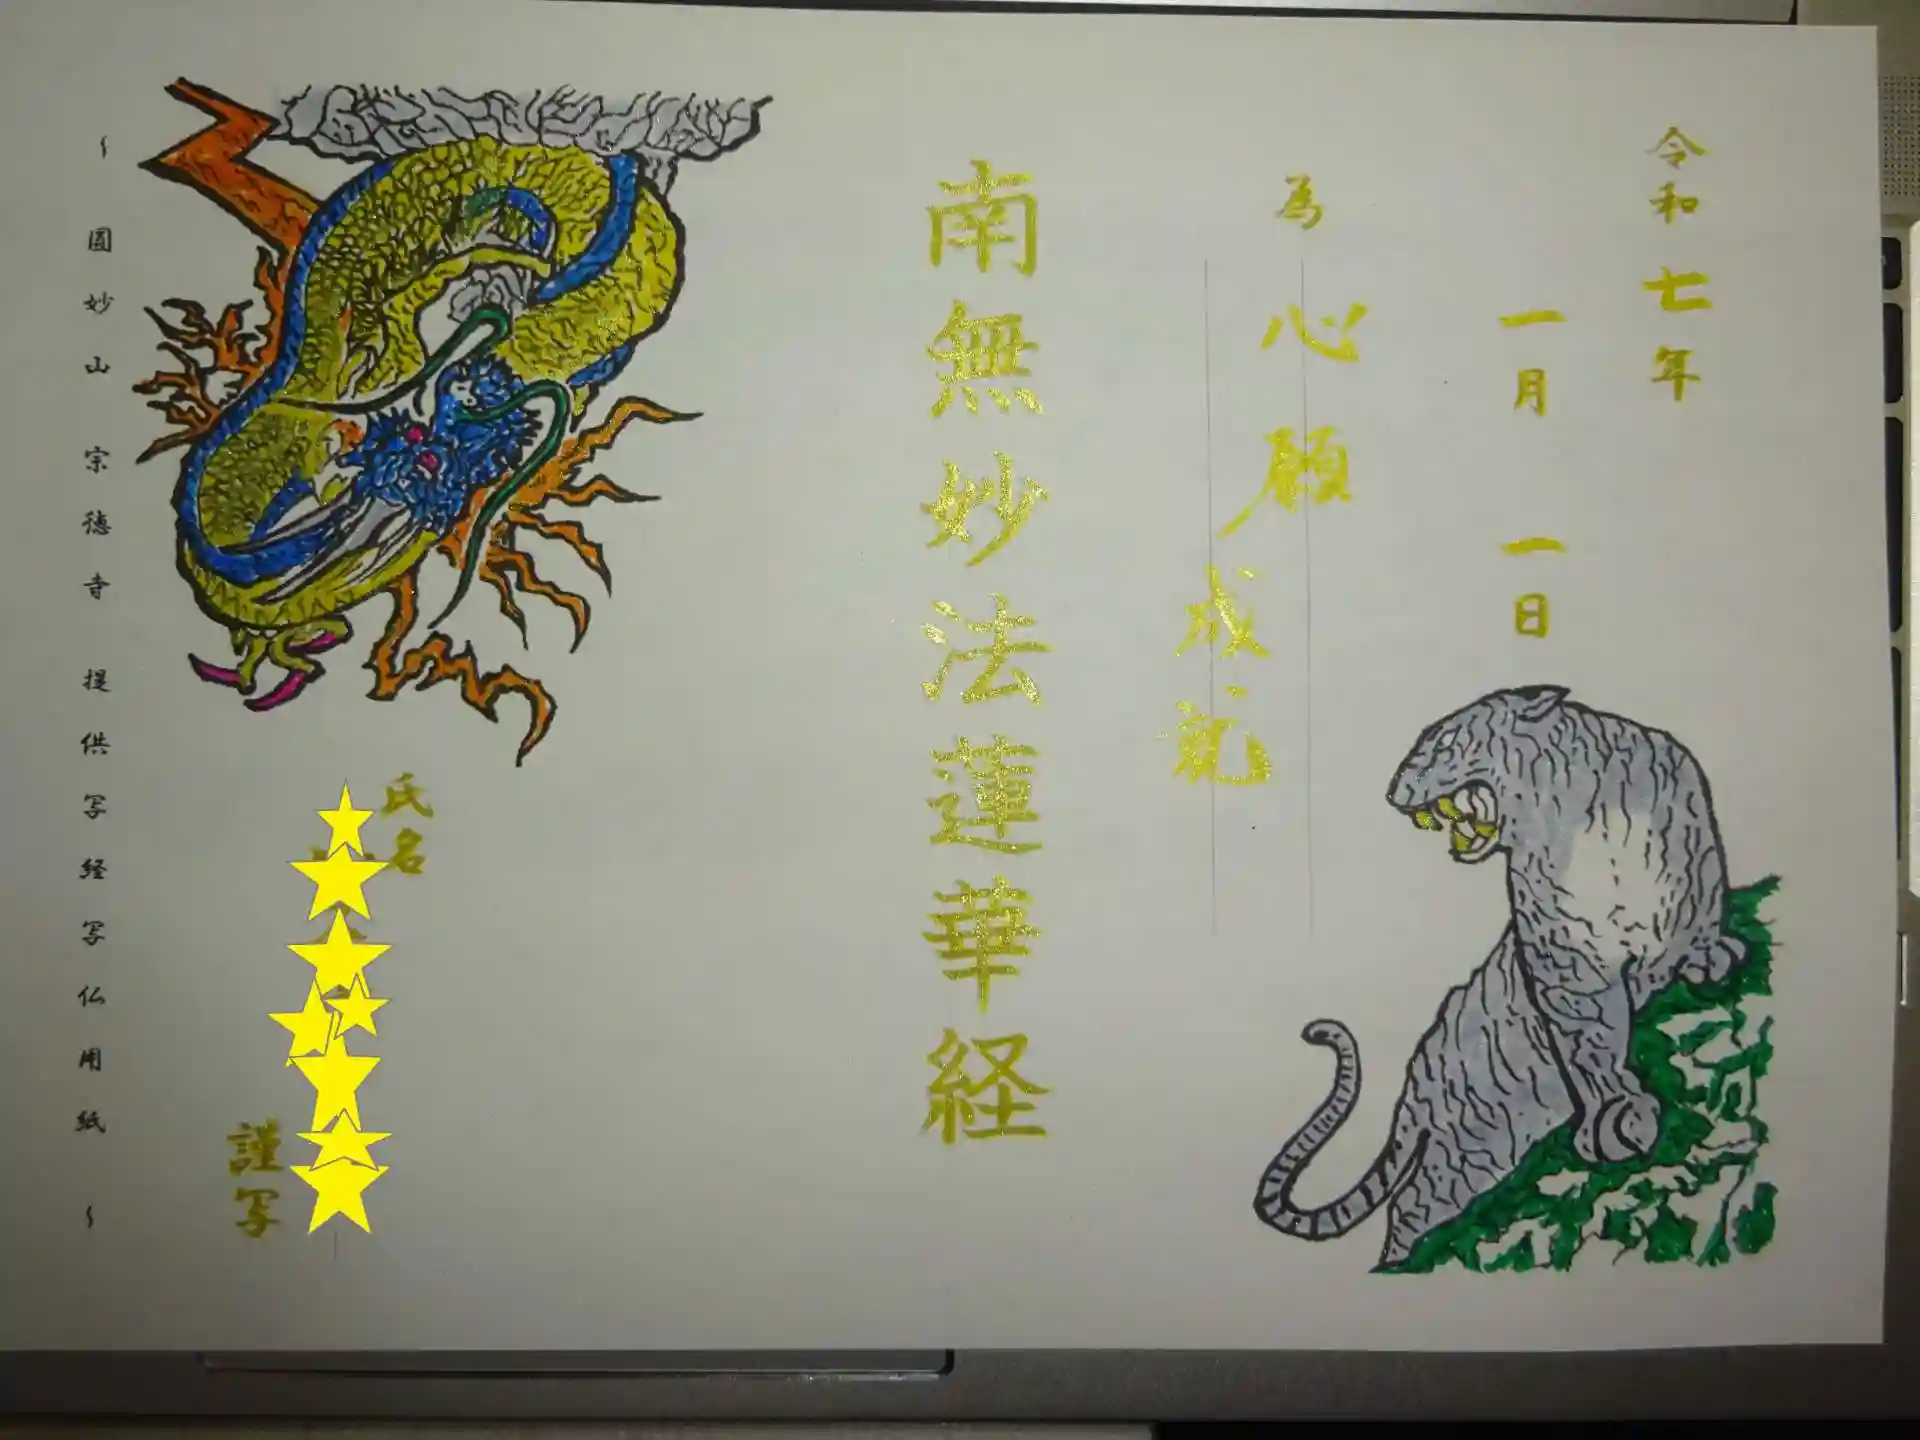 令和七年
一月一日
為
心願成就
南無妙法蓮華経
氏名
謹写
~圓妙山宗徳寺提供写経写仏用紙~